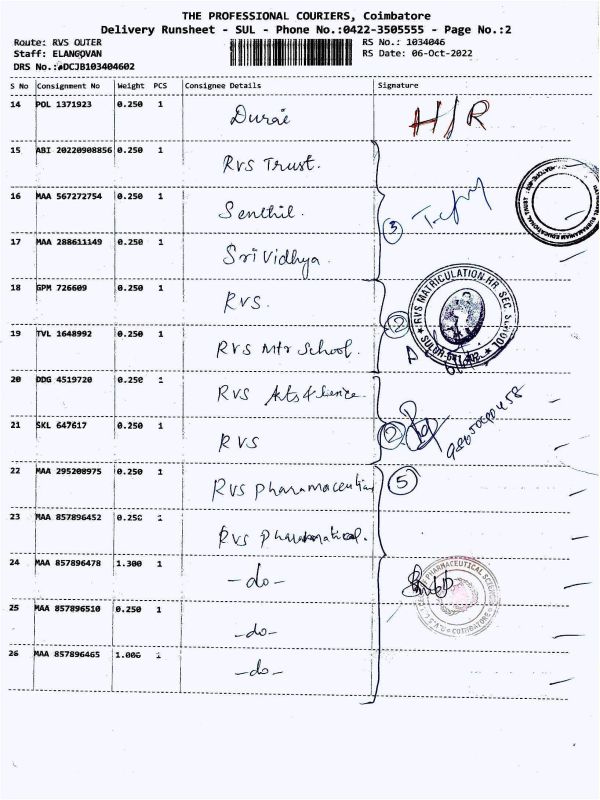 THE PROFESSIONAL COURIERS, Coimbatore
Delivery Runsheet - SUL - Phone No.:0422-3505555 - Page No.:2
Route: RVS OUTER RS No.: 1034046
Staff: ELANGOVAN RS Date: 06-Oct-2022
DRS No.:#DCJB103404602
S No Consignment No Weight PCS Consignee Details Signature
14 POL 1371923 0.250 1 Durai H/R
15 ABI 20220908856 0.250 1 RVS Trust.
16 MAA 567272754 0.250 1 Senthil. 3
17 MAA 288611149 0.250 1 Sri Vidhya.
18 GPM 726609 0.250 1 RVS. RVS MATRICULATION HR. SEC. SCHOOL
19 TVL 1648992 0.250 1 RVS Mtr School. 2 SULUR-641 402
20 DDG 4519720 0.250 1 RVS Arts & Sience.
21 SKL 647617 0.250 1 RVS 2
22 MAA 295208975 0.250 1 RVS pharamaceutical 5
23 MAA 857896452 0.250 1 RVS
24 MAA 857896478 1.300 1 -do- PHARMACEUTICAL SCIENCES
25 MAA 857896510 0.250 1 -do- COIMBATORE
26 MAA 857896465 1.006 1 -do-